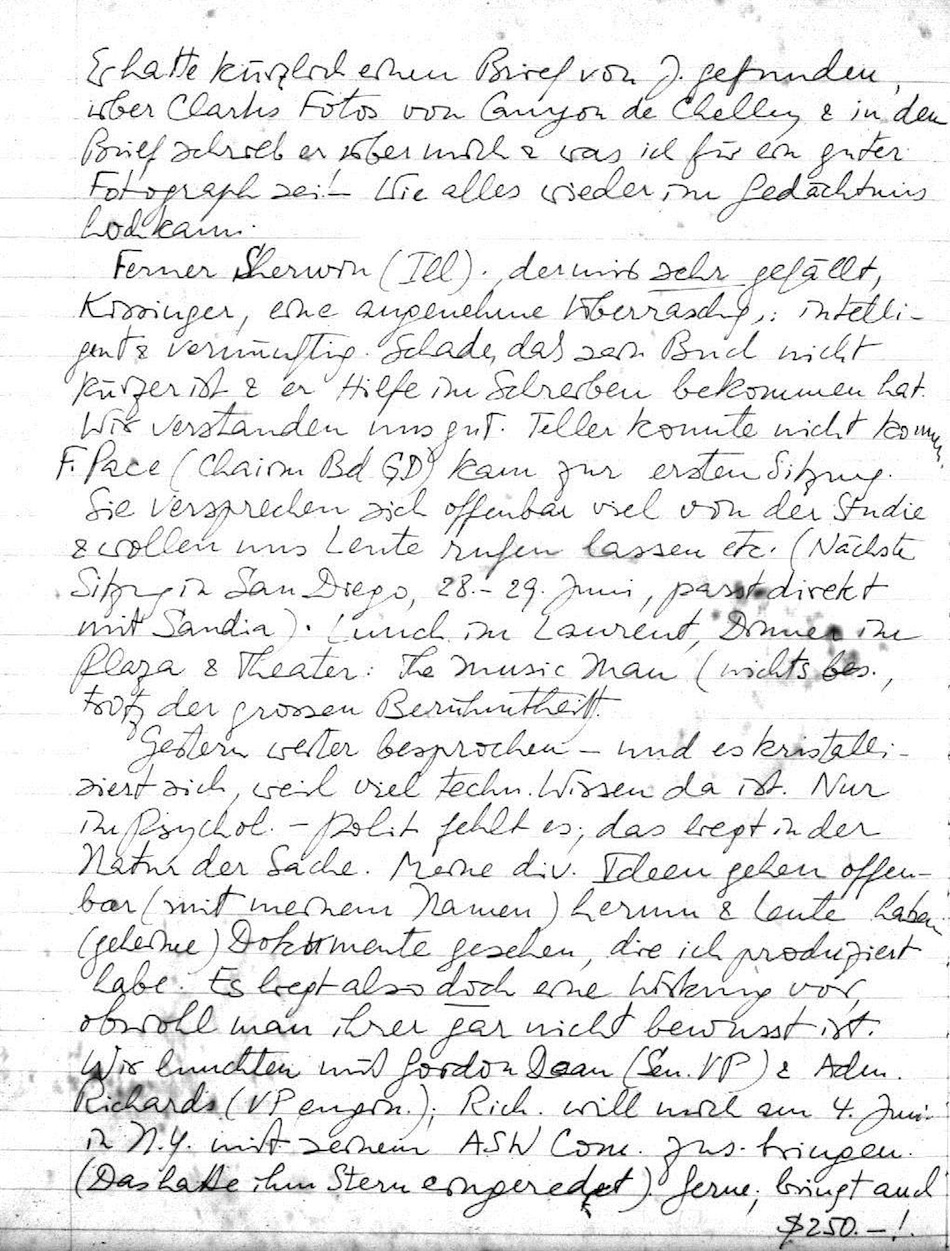 Er hatte kürzlich einen Brief von J. gefunden,
über Clarks Fotos von Canyon de Chelley & in dem
Brief schrieb er über mich & was ich für ein guter
Fotograph sei! – Wie alles wieder im Gedächtnis
hochkam.
Ferner Sherwin (Ill)., der mir sehr gefällt,
Kissinger, eine angenehme Überraschg,: intelli-
gent & vernünftig. Schade, das sein Buch nicht
kürzer ist & er Hilfe im Schreiben bekommen hat.
Wir verstanden uns gut. Teller konnte nicht kommen,
F. Pace (Chairm Bd GD) kam zur ersten Sitzung.
Sie versprechen sich offenbar viel von der Studie
& wollen uns Leute rufen lassen etc. (Nächste
Sitzng in San Diego, 28.-29. Juni, passt direkt
mit Sandia). Lunch im Laurent, Dinner im
Plaza & Theater: The Music Man (nichts bes.,
trotz der grossen Berühmtheit).
Gestern weiter besprochen – und es kristalli-
ziert sich, weil viel techn. Wissen da ist. Nur
im Psychol. – polit fehlt es; das liegt in der
Natur der Sache. Meine div. Ideen gehen offen-
bar (mit meinem Namen) herum & Leute haben
(geheime) Dokumente gesehen, die ich produziert
habe. Es liegt also doch eine Wirkung vor,
obwohl man ihrer gar nicht bewusst ist.
Wir lunchten mit Gordon Dean (Sen. VP) & Adm.
Richards (VP engin.); Rich. will mich am 4. Juni
in N.Y. mit seinem ASW Com. zus. bringen.
(Das hatte ihm Stern eingeredet). Gerne; bringt auch
$250.–!